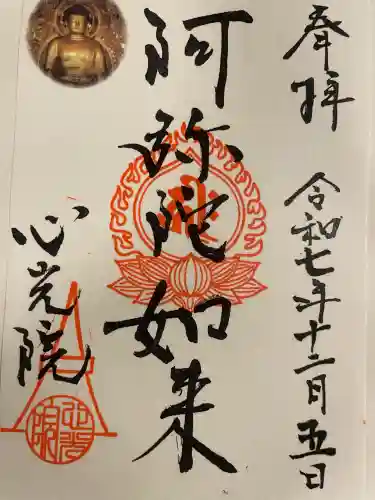 奉拝
令和七年十二月五日
阿弥陀如来
心光院